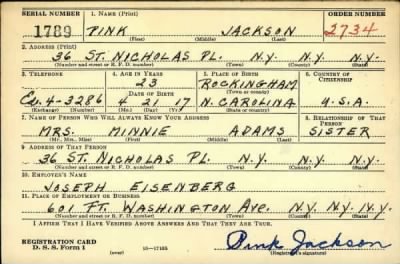 SERIAL NUMBER 1. NAME (Print) ORDER NUMBER
1789 PINK JACKSON 2734
(First) (Middle) (Last)
2. ADDRESS (Print)
36 ST. NICHOLAS PL. N.Y. N.Y. N.Y.
(Number and street or R. F. D. number) (Town) (County) (State)
3. TELEPHONE 4. AGE IN YEARS 5. PLACE OF BIRTH 6. COUNTRY OF CITIZENSHIP
23 ROCKINGHAM
DATE OF BIRTH (Town or county)
Ed. 4-3286 4 21 17 N. CAROLINA U.S.A.
(Exchange) (Number) (Mo.) (Day) (Yr.) (State or country)
7. NAME OF PERSON WHO WILL ALWAYS KNOW YOUR ADDRESS 8. RELATIONSHIP OF THAT PERSON
MRS. MINNIE ADAMS SISTER
(Mr., Mrs., Miss) (First) (Middle) (Last)
9. ADDRESS OF THAT PERSON
36 ST. NICHOLAS PL. N.Y. N.Y. N.Y.
(Number and street or R. F. D. number) (Town) (County) (State)
10. EMPLOYER'S NAME
JOSEPH EISENBERG
11. PLACE OF EMPLOYMENT OR BUSINESS
601 FT. WASHINGTON AVE. N.Y. N.Y. N.Y.
(Number and street or R. F. D. number) (Town) (County) (State)
I AFFIRM THAT I HAVE VERIFIED ABOVE ANSWERS AND THAT THEY ARE TRUE.
REGISTRATION CARD
D. S. S. Form 1 (over) 16-17105 Pink Jackson
(Registrant's signature)